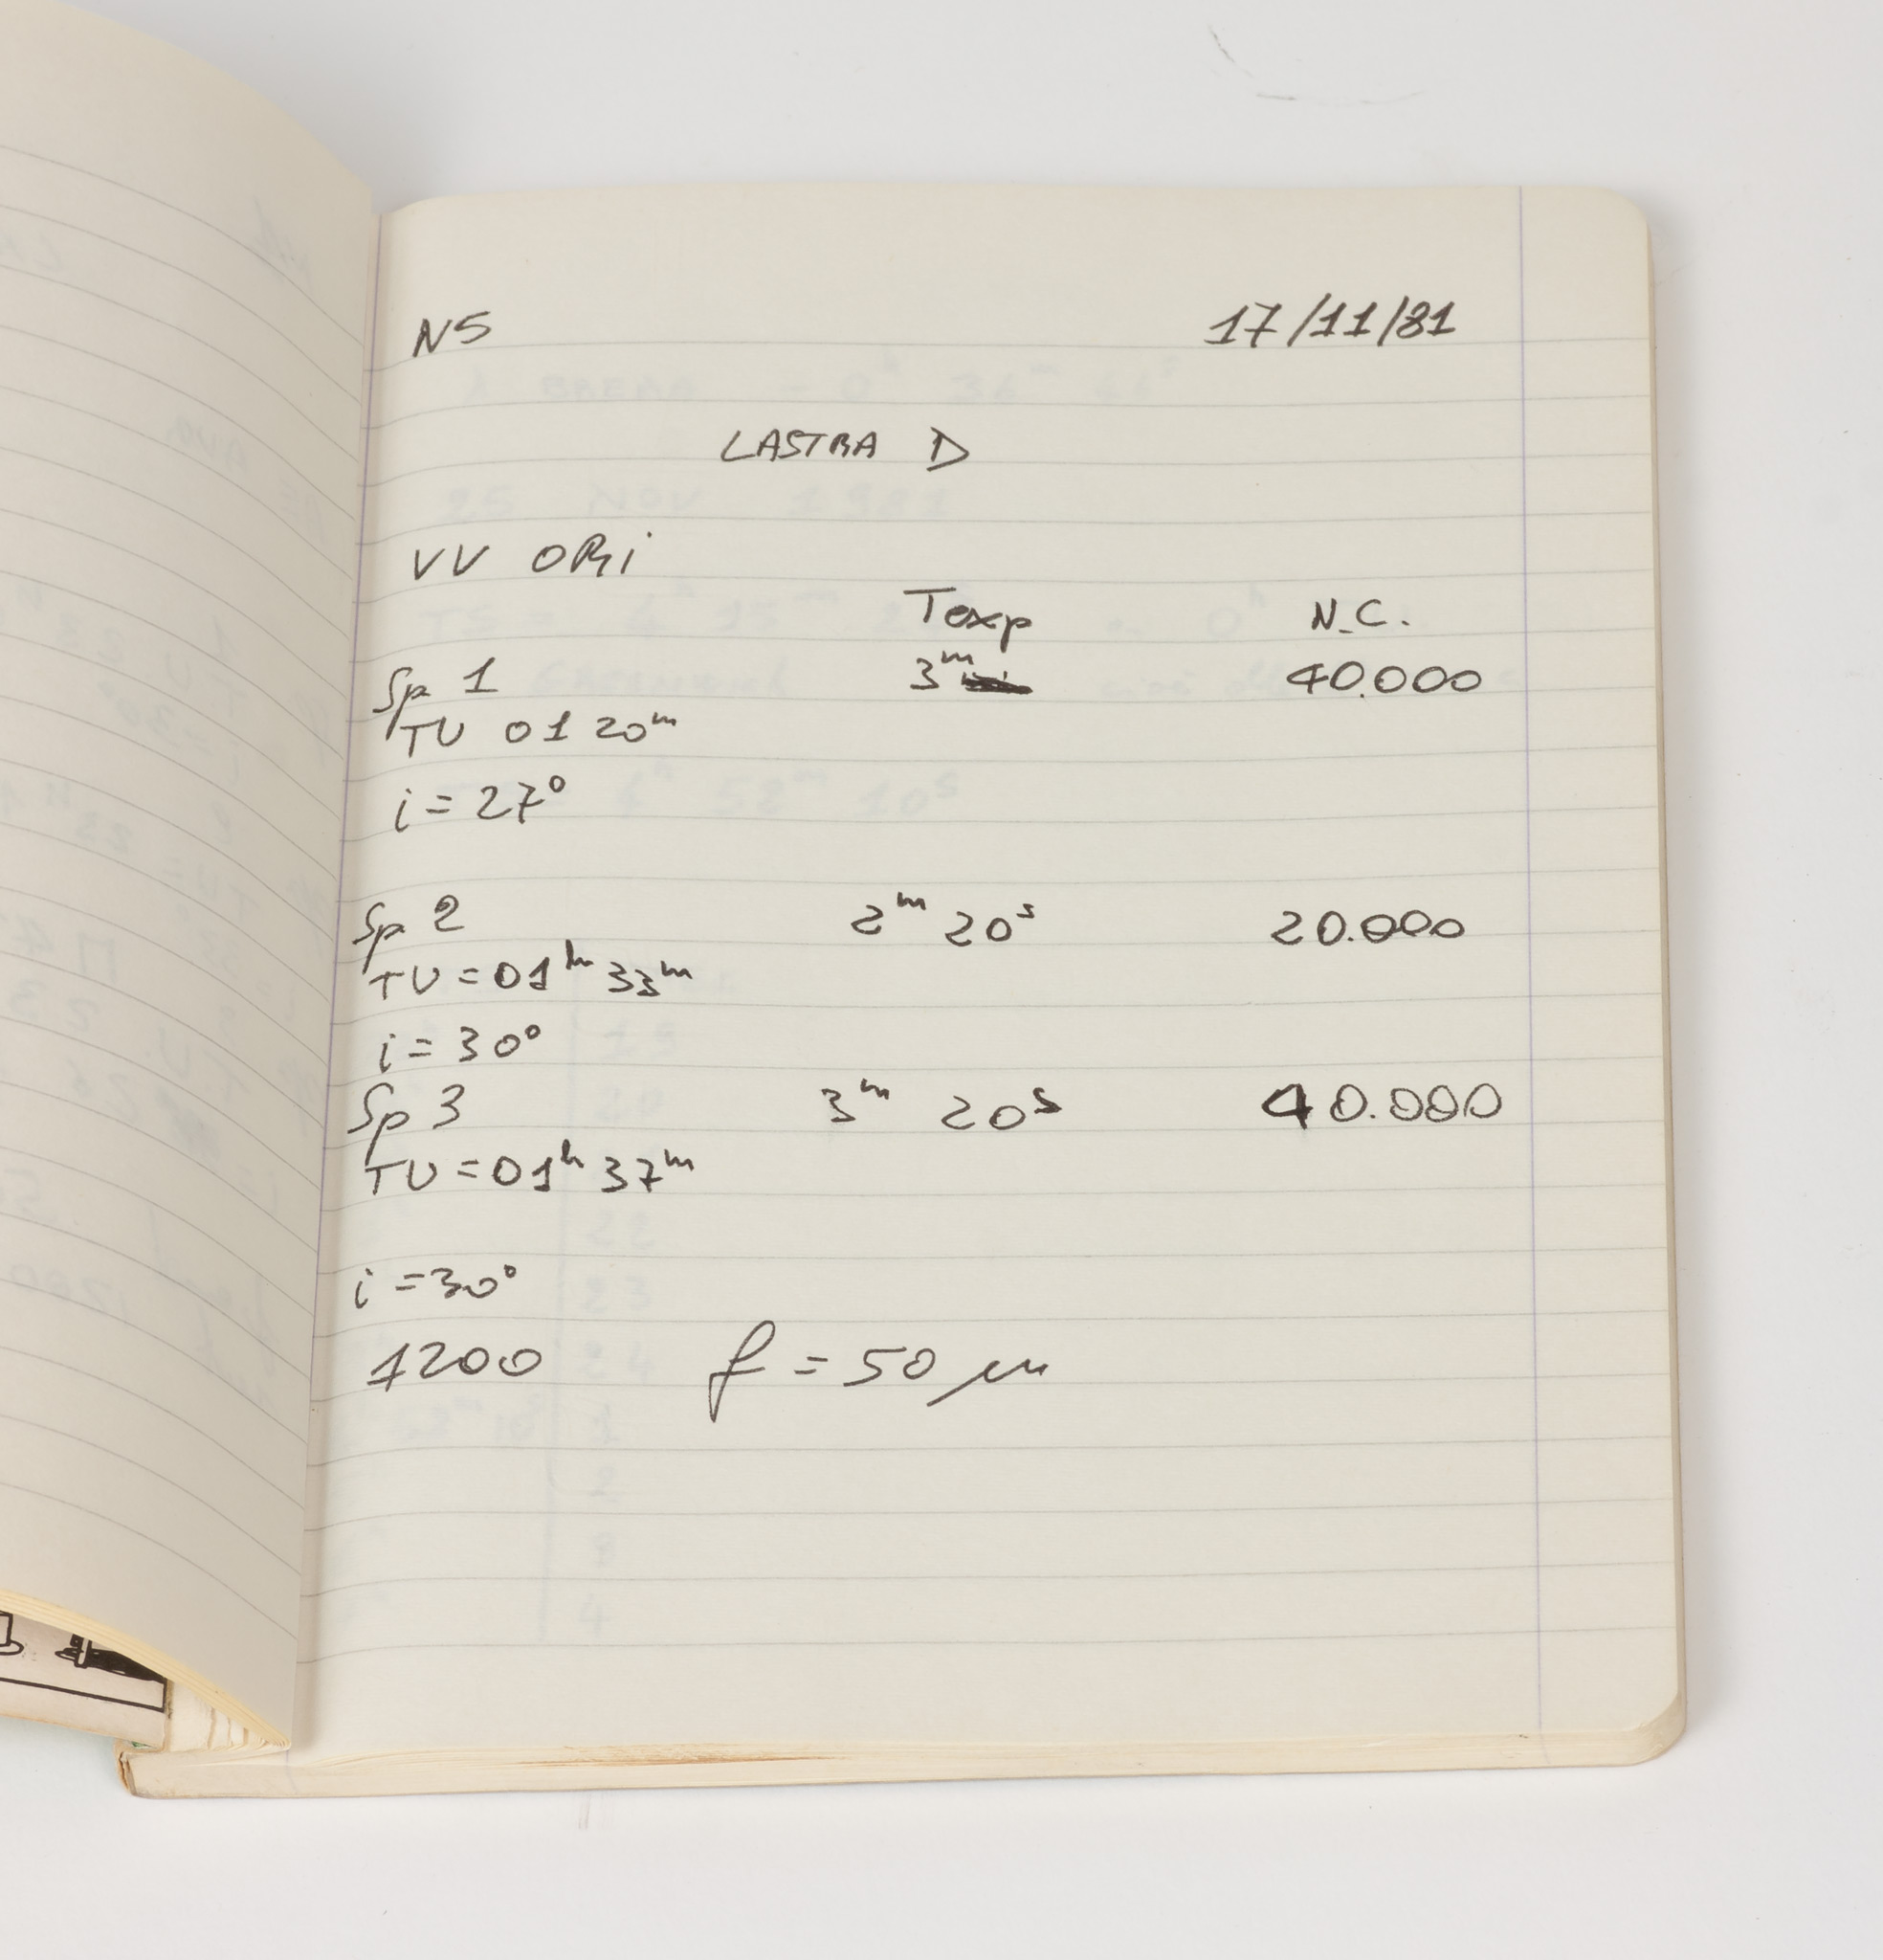 N5 17/11/81
LASTRA D
VV ORi
Texp N.C.
Sp 1 3m 40.000
TU 01 20m
i = 27°
Sp 2 2m 20s 20.000
TU = 01h 33m
i = 30°
Sp 3 3m 20s 40.000
TU = 01h 37m
i = 30°
1200 f = 50 μ